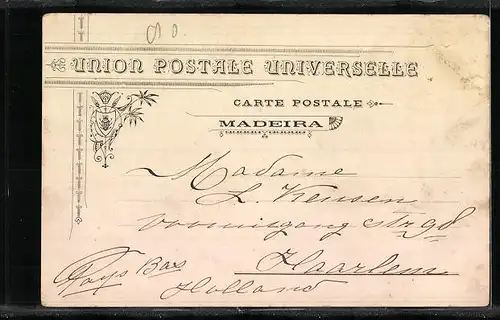 UNION POSTALE UNIVERSELLE
CARTE POSTALE
MADEIRA
Madame
L. Kensen
str 98
Haarlem
Pays Bas
Holland